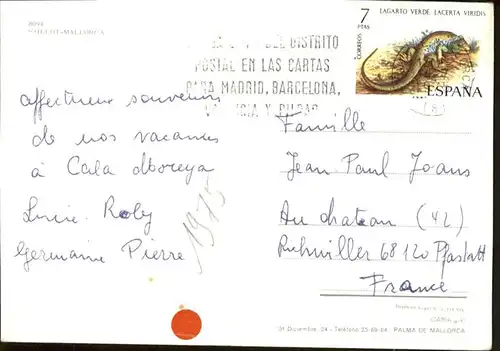 8094
MALLORCA
7
PTAS
CORREOS
LAGARTO VERDE. LACERTA VIRIDIS
ESPAÑA
DEL DISTRITO
POSTAL EN LAS CARTAS
PARA MADRID, BARCELONA,
Y BILBAO
affectueux souvenirs
de nos vacances
à Cala Moreya
Lucie Roby
Germaine Pierre
1975
Famille
Jean Paul Joans
Au chateau (42)
Ruhwiller 68120 Pfastatt
France
31 Diciembre, 24 - Teléfono 25 69 64 PALMA DE MALLORCA